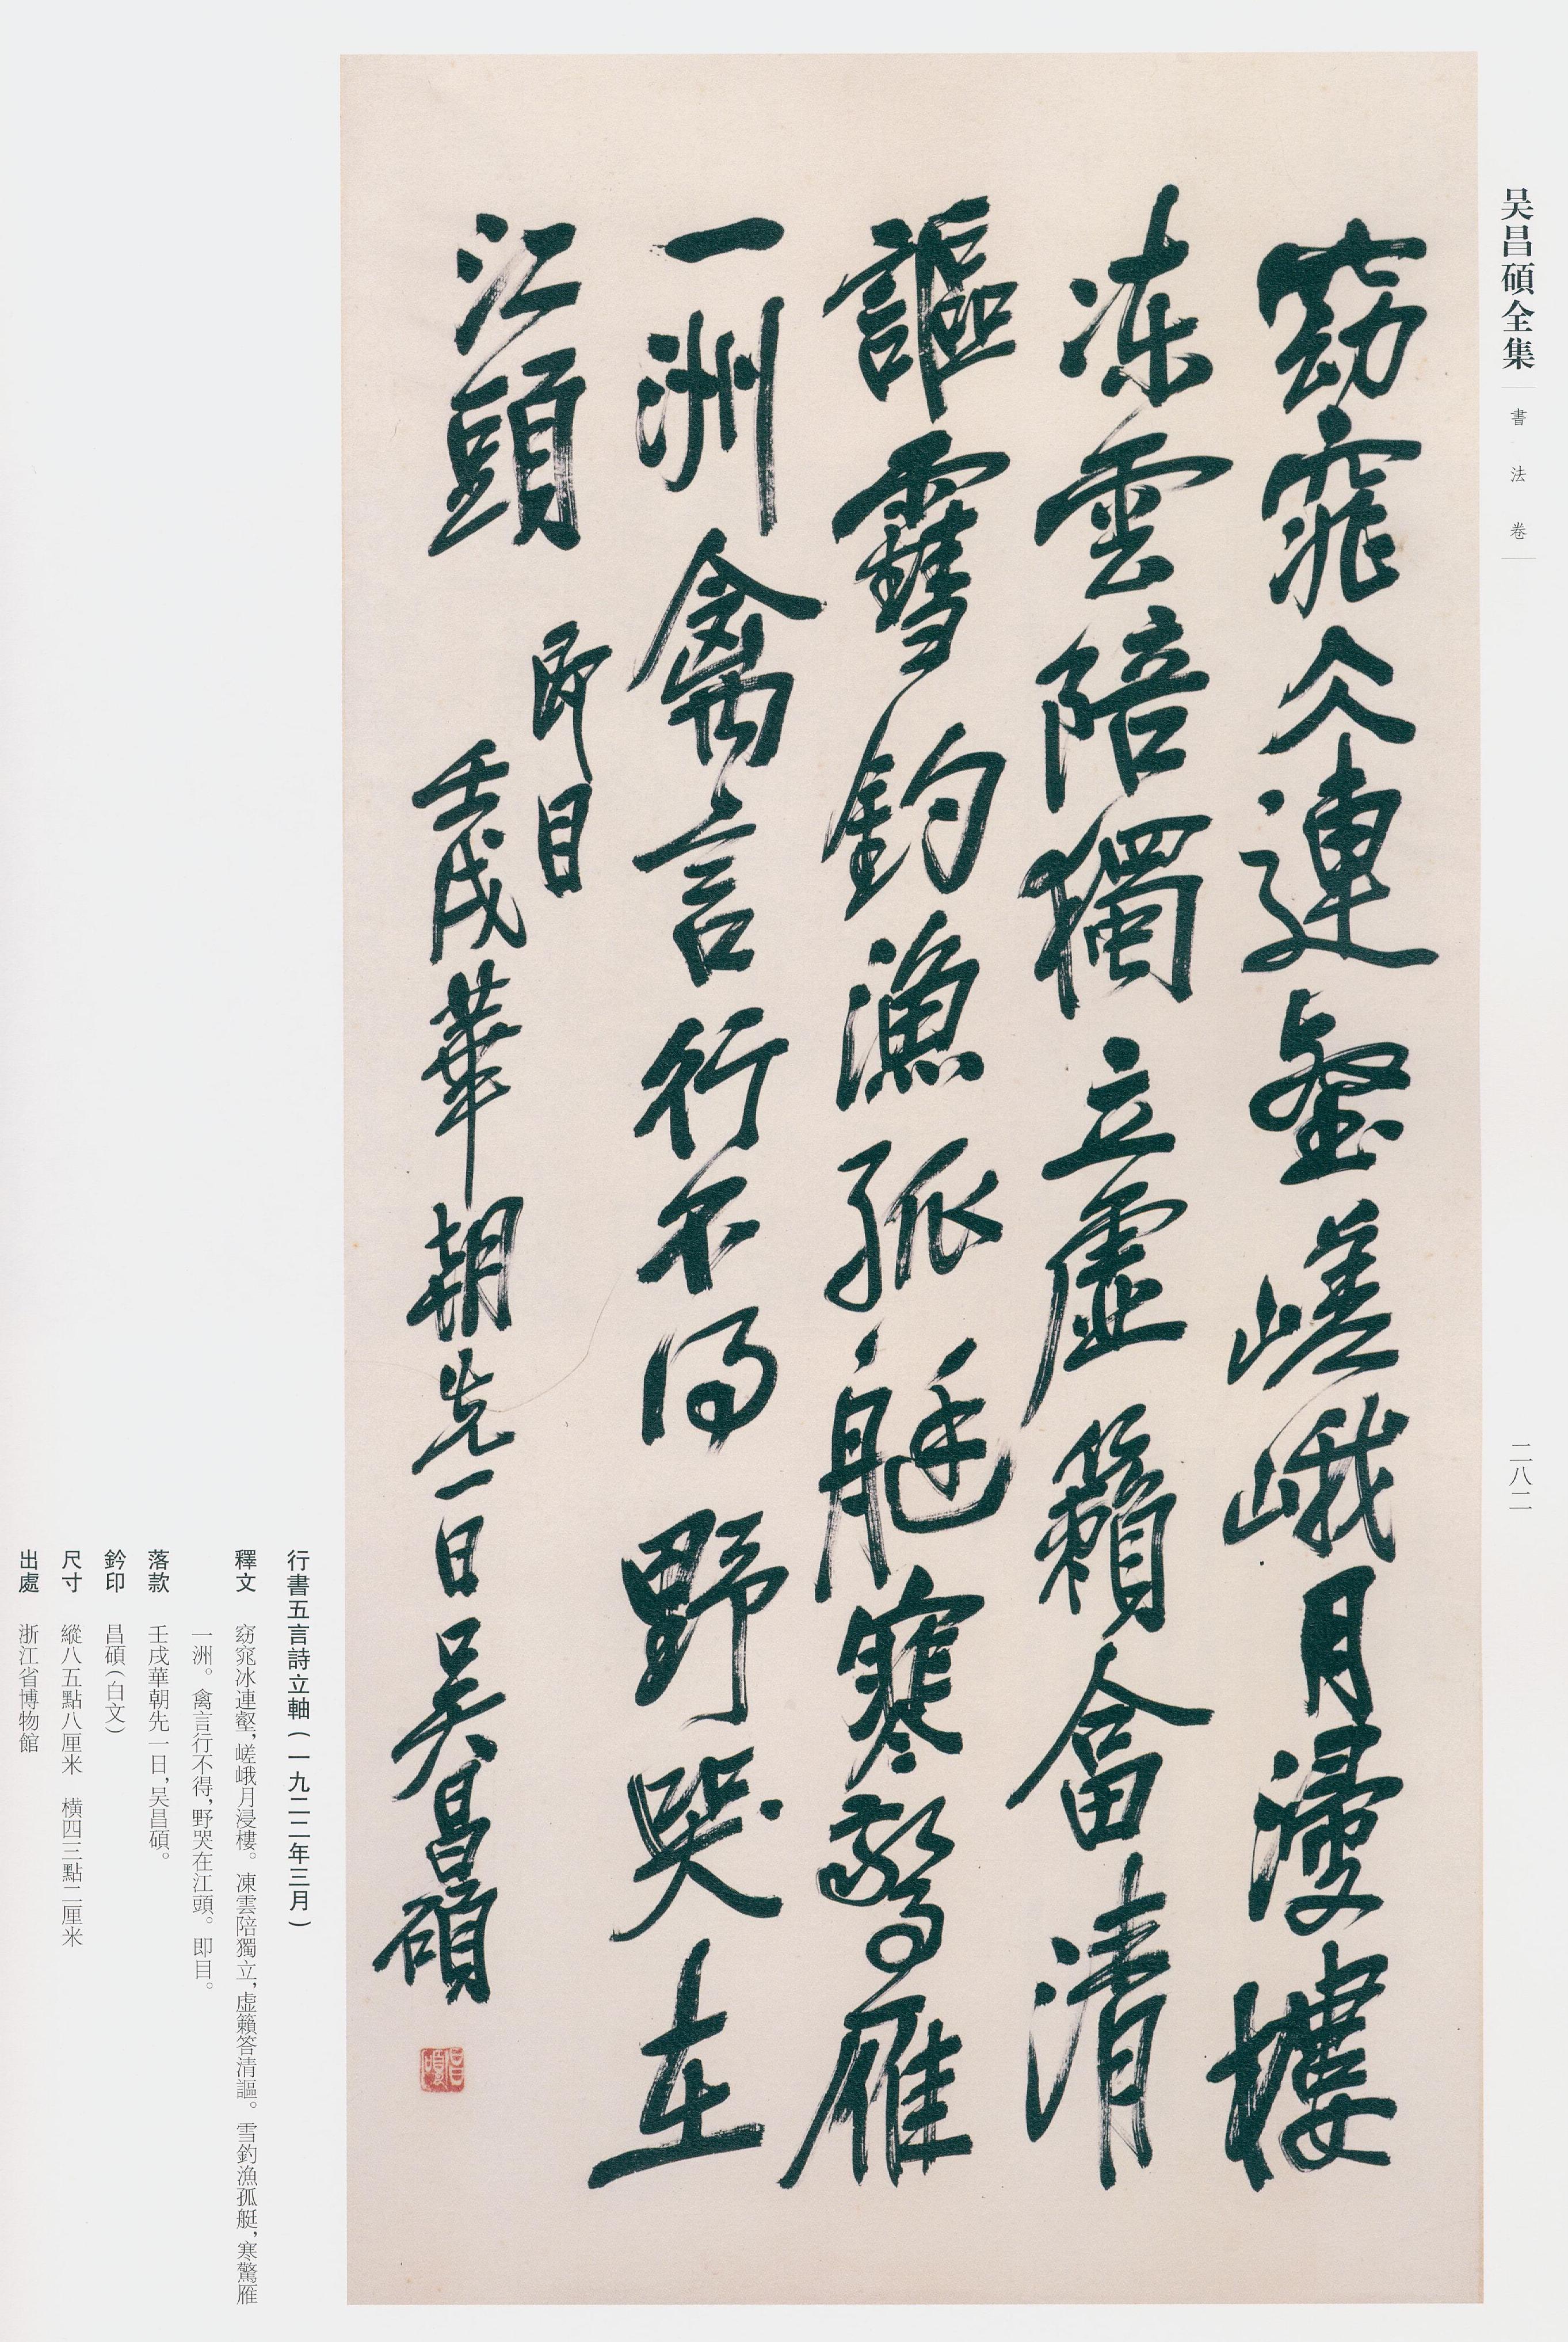 吴昌碩全集
書法卷
二八二
窈窕仌連壑嵯峨月浸樓
凍雲陪獨立虛籟畣清
謳雪釣漁孤艇寒驚雁
一洲禽言行不得野哭在
江頭
即目
壬戌華朝先一日吴昌碩
行書五言詩立軸(一九二二年三月)
釋文 窈窕冰連壑,嵯峨月浸樓。凍雲陪獨立,虛籟答清謳。雪釣漁孤艇,寒驚雁
一洲。禽言行不得,野哭在江頭。即目。
落款 壬戌華朝先一日,吴昌碩。
鈐印 昌碩(白文)
尺寸 縱八五點八厘米 橫四三點二厘米
出處 浙江省博物館